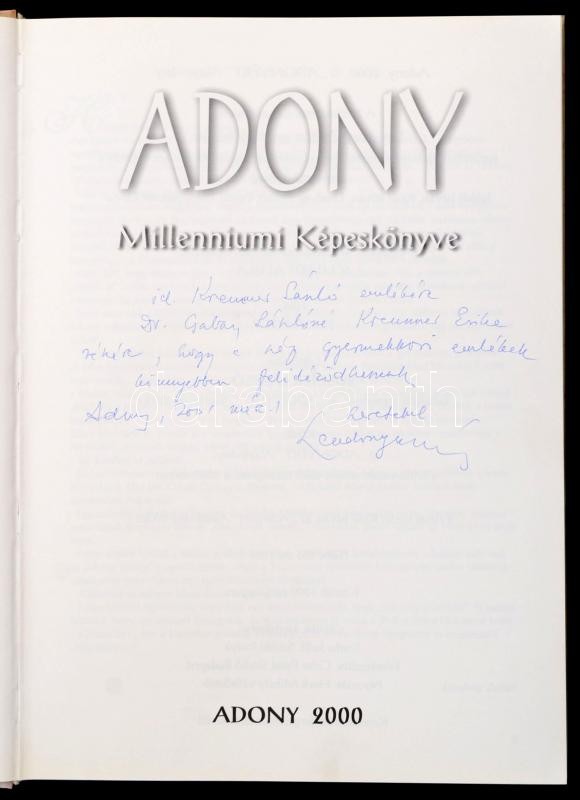 ADONY
Millenniumi Képeskönyve
id. Kremmer László emlékére
Dr. Gabaj Lászlóné Kremmer Erika
részére, hogy a régi gyermekkori emlékek
könnyebben felidéződhessenek
Adony, 2001 márc.
Szeretettel
darabanth
ADONY 2000